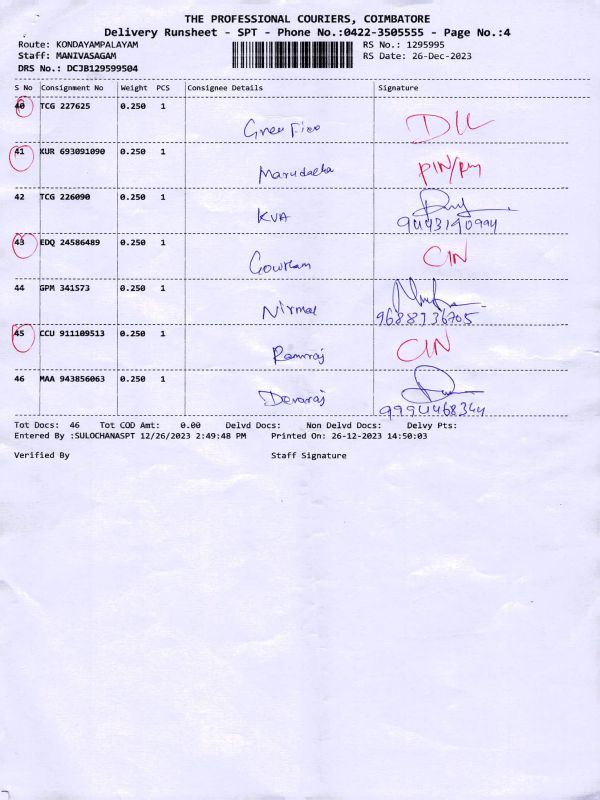 THE PROFESSIONAL COURIERS, COIMBATORE
Delivery Runsheet - SPT - Phone No.:0422-3505555 - Page No.:4
Route: KONDAYAMPALAYAM RS No.: 1295995
Staff: MANIVASAGAM RS Date: 26-Dec-2023
DRS No.: DCJB129599504
S No Consignment No Weight PCS Consignee Details Signature
40 TCG 227625 0.250 1
DLL
41 KUR 693091090 0.250 1
Marudatha PIN/
42 TCG 226090 0.250 1
KVA 9443190994
43 EDQ 24586489 0.250 1 CIN
Gowtham
44 GPM 341573 0.250 1
Nirmal 9688736705
45 CCU 911109513 0.250 1 CIN
Ramraj
46 MAA 943856063 0.250 1
Devaraj 9994468344
Tot Docs: 46 Tot COD Amt: 0.00 Delvd Docs: Non Delvd Docs: Delvy Pts:
Entered By :SULOCHANASPT 12/26/2023 2:49:48 PM Printed On: 26-12-2023 14:50:03
Verified By Staff Signature